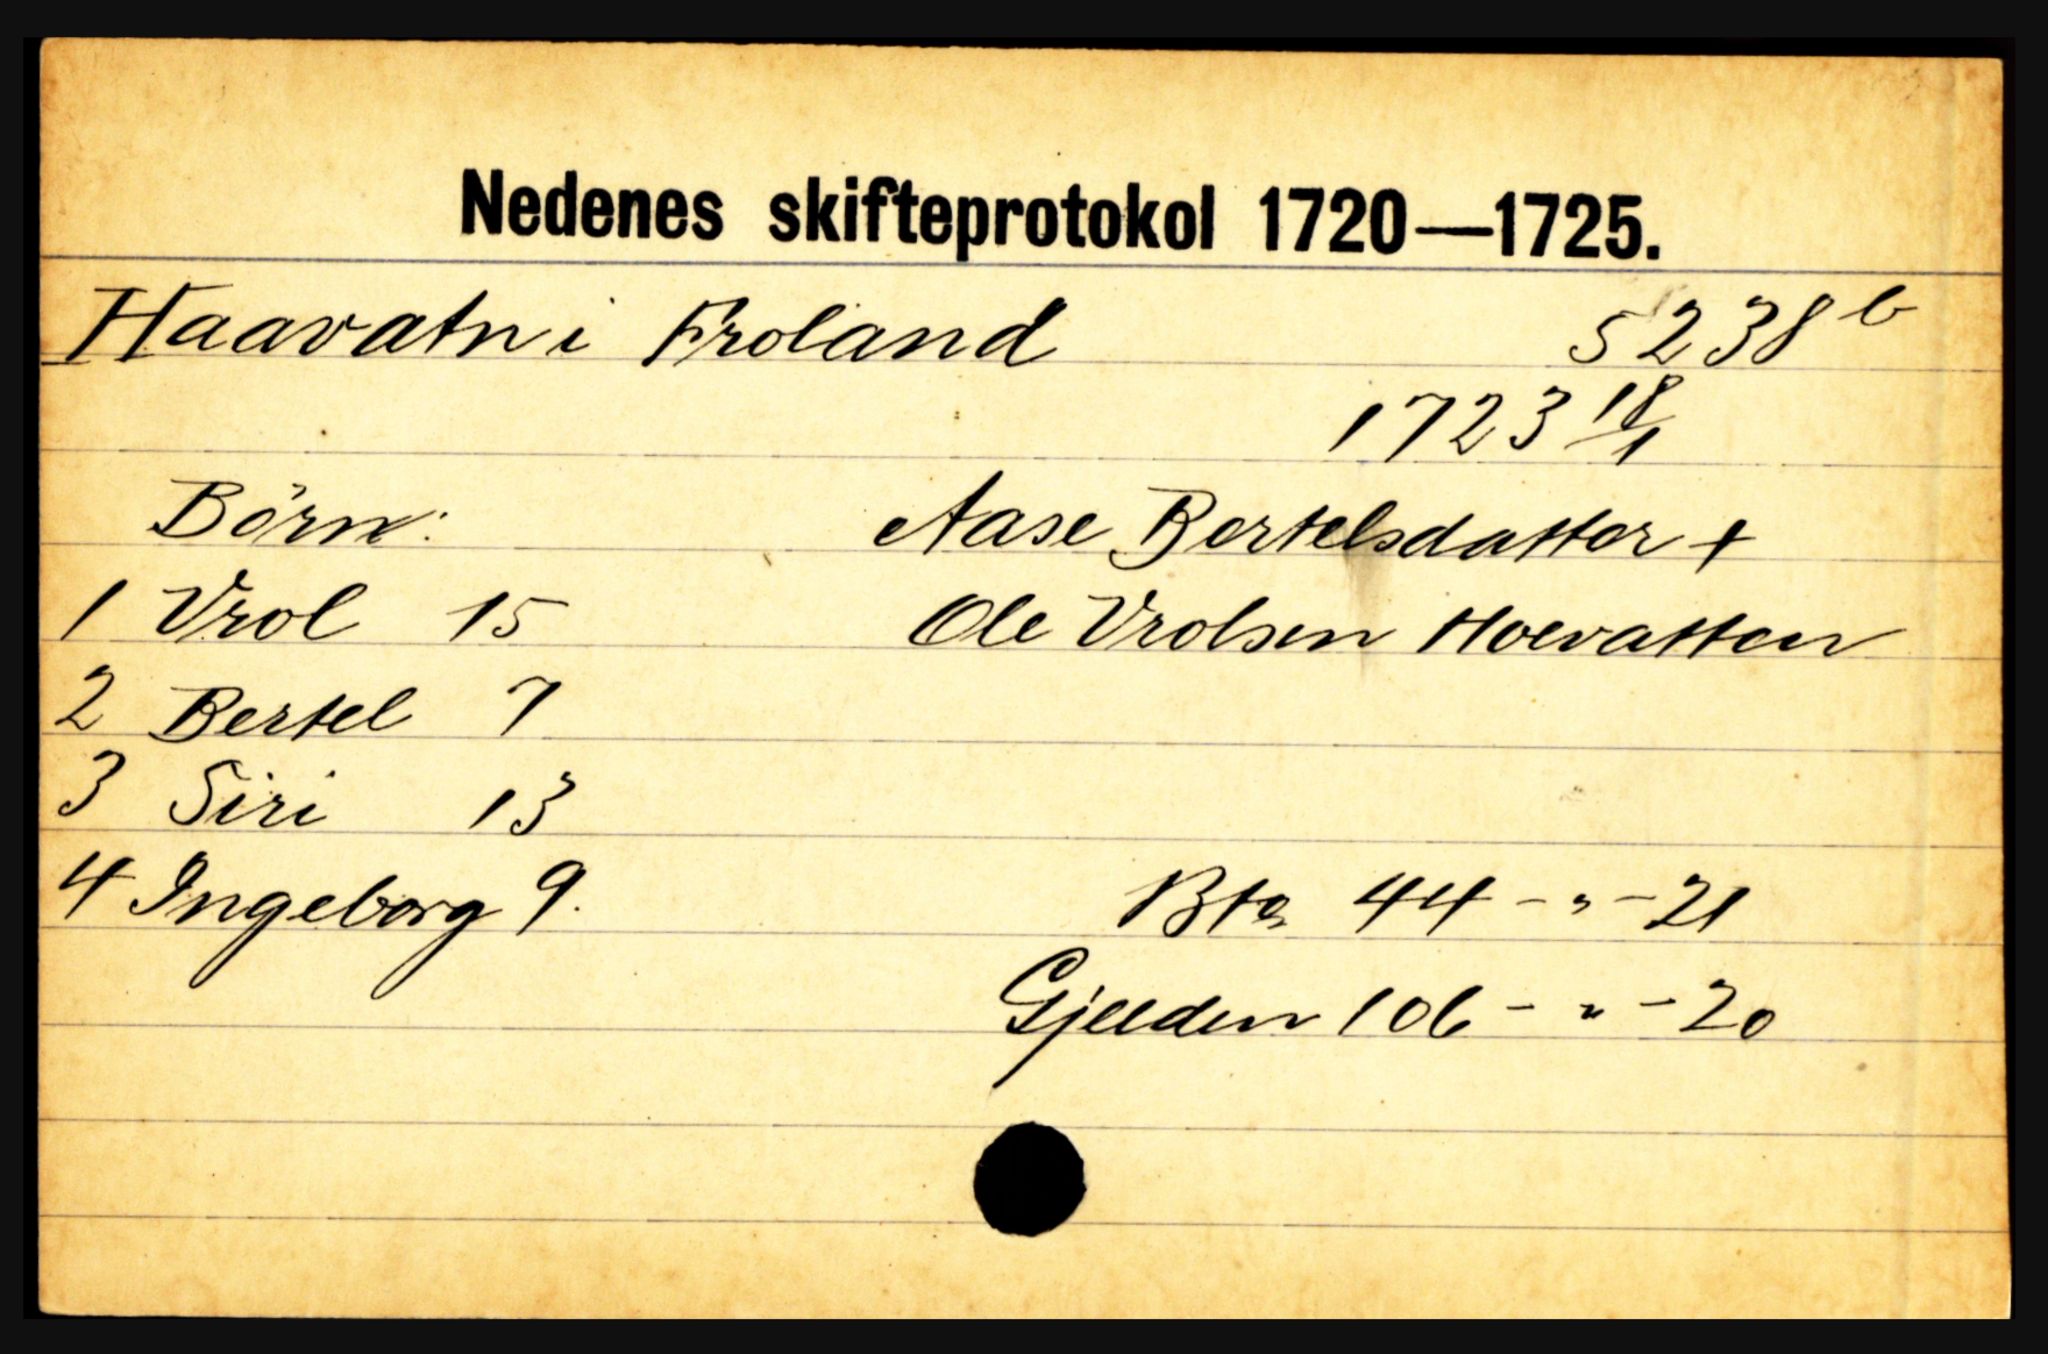 Nedenes skifteprotokol 1720—1725.
Haavatn i Froland 5 238 b
1723 18/1
Börn: Aase Bertelsdatter +
1 Vrol 15 Ole Vrolsen Hoevatten
2 Bertel 7
3 Siri 13
4 Ingeborg 9. Bto 44 - „ - 21
Gjelden 106 - „ - 20